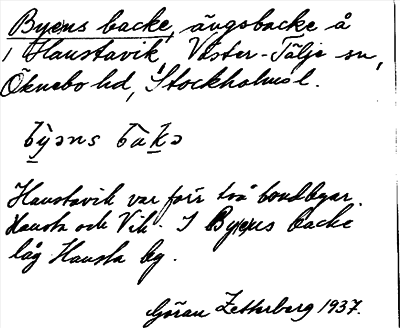 Byens backe, ängsbacke å
/ Haustavik, Väster-Tälje sn,
Öknebo hd, Stockholms l.
b̀yəns bakə
Haustavik var förr två bondbyar.
Hausta och Vik. I Byens backe
låg Hausta by.
Göran Zetterberg 1937.